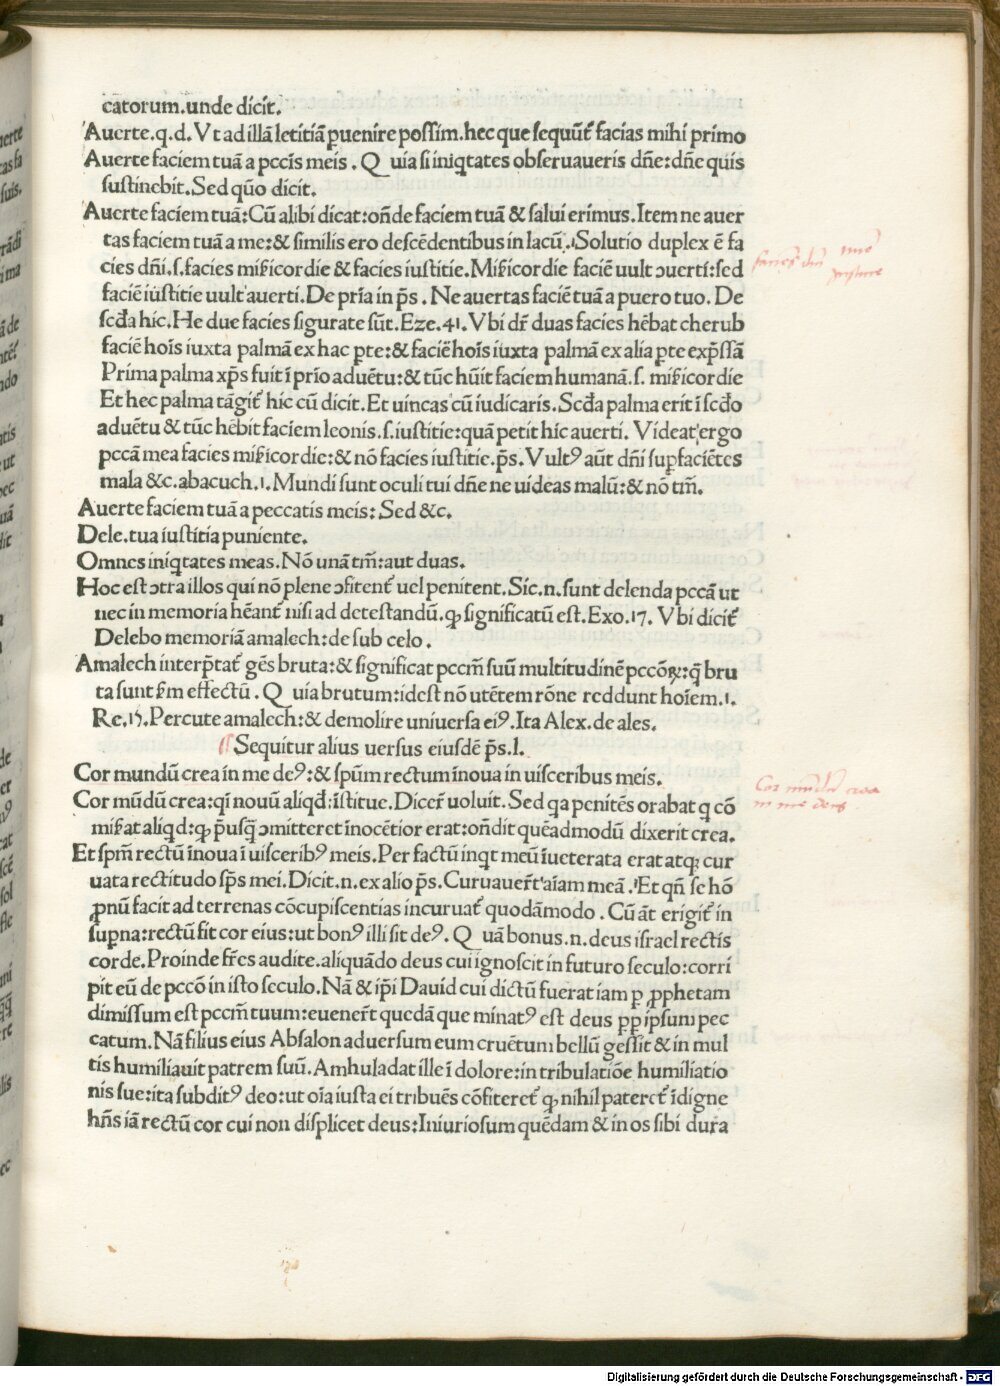 catorum.unde dicit.
Auerte.q.d. Vt ad illā letitiā ꝑuenire possim.hec que sequūt᷑ facias mihi primo
Auerte faciem tuā a pccīs meis . Quia si iniqtates obseruaueris dñe:dñe quis
sustinebit.Sed quō dicit.
Auerte faciem tuā: Cū alibi dicat:onde faciem tuā & salui erimus. Item ne auer
tas faciem tuā a me:& similis ero descēdentibus in lacū . Solutio duplex ē fa
cies dñi.s.facies miẜicordie & facies iustitie. Miẜicordie faciē uult ↄuerti:sed
faciē iustitie uult auerti. De pria in p̄s . Ne auertas faciē tuā a puero tuo. De
scďa hic. He due facies figurate sūt. Eze.41. Vbi dr̄ duas facies hēbat cherub
faciē hoīs iuxta palmā ex hac ꝑte:& faciē hoīs iuxta palmā ex alia ꝑte exp̄ssā
Prima palma xp̄s fuit ī prīo aduētu:& tūc hūit faciem humanā.s. miẜicordie
Et hec palma tāgit᷑ hic cū dicit. Et uincas cū iudicaris. Scďa palma erit ī scďo
aduētu & tūc hēbit faciem leonis.s.iustitie:quā petit hic auerti. Videat᷑ ergo
pccā mea facies miẜicordie:& nō facies iustitie.p̄s. Vultꝰ aūt dñi suꝑ faciētes
mala &c.abacuch.1. Mundi sunt oculi tui dñe ne uideas malū:& nō tm̄.
Auerte faciem tuā a peccatis meis: Sed &c.
Dele.tua iustitia puniente.
Omnes iniqtates meas. Nō unā tm̄:aut duas.
Hoc est ↄtra illos qui nō plene ↄfitent᷑ uel penitent. Sic.n.sunt delenda pccā ut
nec in memoria hēant᷑ nisi ad detestandū.qꝫ significatū est. Exo.17. Vbi dicit᷑
Delebo memoriā amalech:de sub celo.
Amalech interp̄tat᷑ gēs bruta:& significat pccm̄ suū multitudinē pccōꝝ:q̄ bru
ta sunt ẜm effectū . Quia brutum:idest nō utētem rōne reddunt hoīem.1.
Re.15.Percute amalech:& demolire uniuersa eiꝰ. Ita Alex. de ales.
Sequitur alius uersus eiusdē p̄s.l.
Cor mundū crea in me deꝰ:& spūm rectum īnoua in uisceribus meis.
Cor mūdū crea:qī nouū aliqđ īstitue. Dicer̄ uoluit. Sed qa penitēs orabat q cō
miẜat aliqd:qꝫ p̄usq̄ ↄmitteret īnocētior erat:ondit quēadmodū dixerit crea.
Et spm̄ rectū īnoua ī uisceribꝰ meis. Per factū inqt meū īueterata erat atqꝫ cur
uata rectitudo sp̄s mei. Dicit.n.ex alio p̄s. Curuauer̄t aīam meā . Et qn̄ se hō
ꝓnū facit ad terrenas cōcupiscentias incuruat᷑ quodāmodo . Cū āt erigit᷑ in
suꝑna:rectū fit cor eius:ut bonꝰ illi sit deꝰ. Quā bonus.n.deus israel rectis
corde. Proinde fr̄es audite.aliquādo deus cui ignoscit in futuro seculo:corri
pit eū de pccō in isto seculo. Nā & ip̄i Dauid cui dictū fuerat iam ꝑ ꝓphetam
dimissum est pccm̄ tuum:euener̄t quedā que minatꝰ est deus ꝓpꝑ ipsum pec
catum. Nā filius eius Absalon aduersum eum cruētum bellū gessit & in mul
tis humiliauit patrem suū. Amhuladat ille ī dolore:in tribulatiōe humiliatio
nis sue:ita subditꝰ deo:ut oīa iusta ei tribuēs cōfiteret᷑ qꝫ nihil pateret᷑ īdigne
hn̄s iā rectū cor cui non displicet deus: Iniuriosum quēdam & in os sibi dura
Cor mūdū crea
in me deus
Digitalisierung gefördert durch die Deutsche Forschungsgemeinschaft - DFG